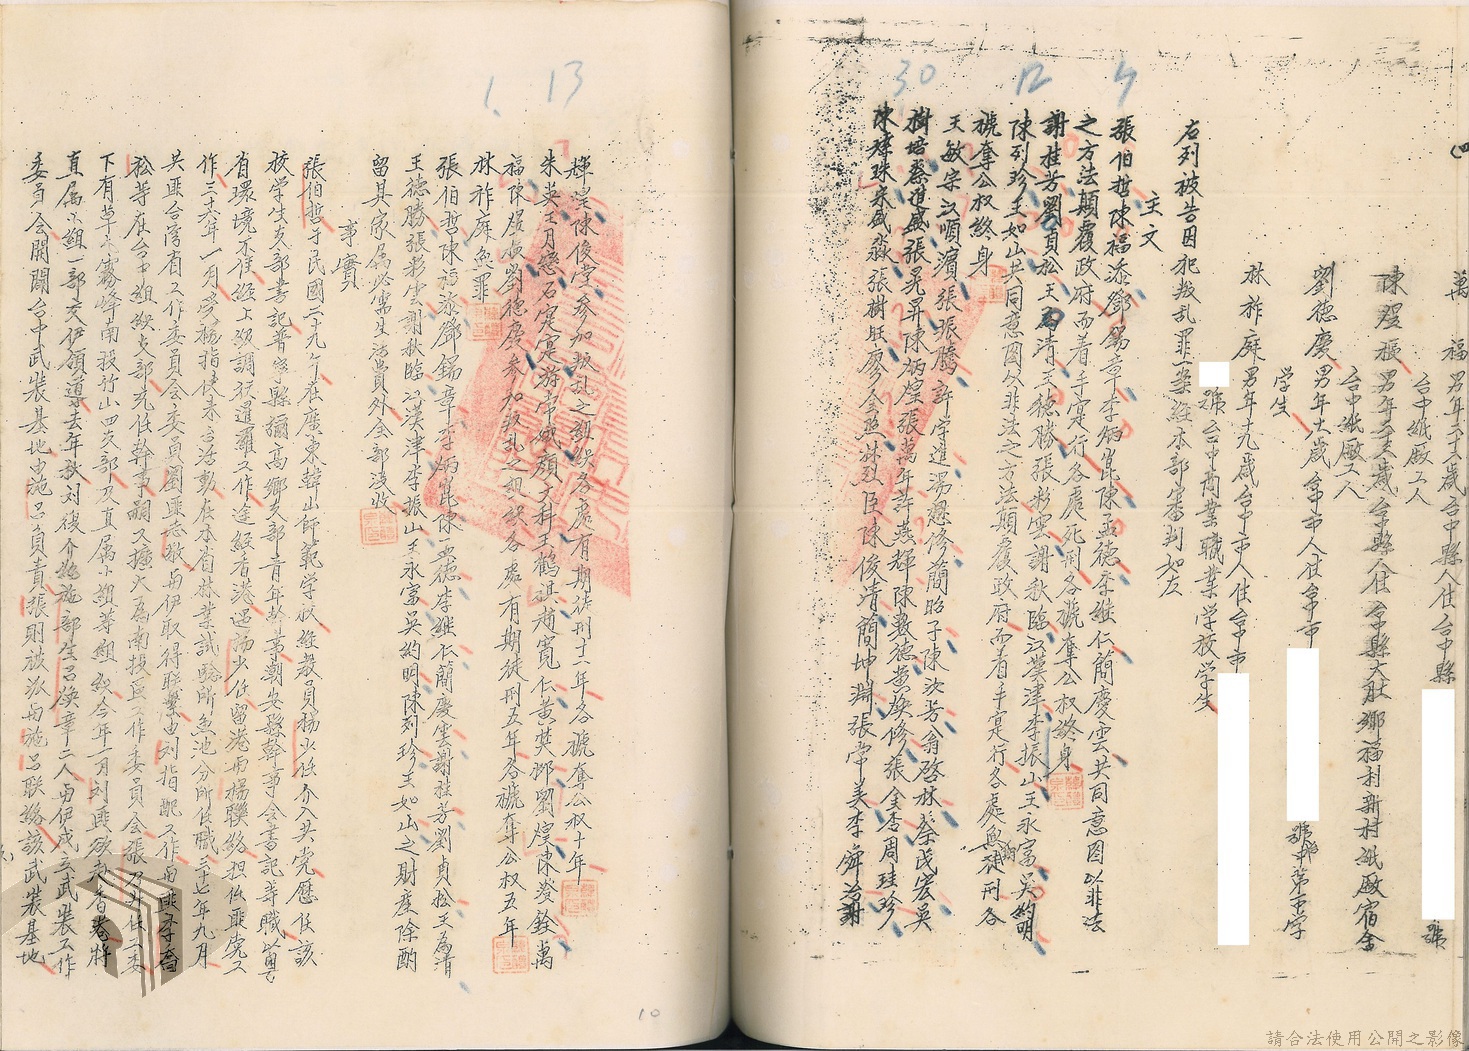 萬　福 男年二十六歲台中縣人住台中縣
號
台中紙廠工人
陳𤩁振 男年二十六歲台中縣人住台中縣大肚鄉福利新村紙廠宿舍
台中紙廠工人
劉德慶 男年十八歲台中市人住台中市
學生
林祚庥 男年十九歲台中市人住台中市
號台中商業職業学校学生
右列被告因犯叛乱罪一案經本部審判如左
主文
張伯哲陳福添鄧錫章李炳崑陳孟德李継仁簡慶云共同意図以非法
之方法顛覆政府而着手実行各處死刑各褫奪公权終身
謝桂芳劉貞松王為清王德勝張彩雲謝秋臨江漢津李振山王永富吳約明
陳列珍王如山共同意図以非法之方法顛覆政府而着手実行各處無期徒刑各
褫奪公权終身
王敏宗江順濱張振騰許学進湯懋修簡昭子陳汝芳翁啓林蔡茂宏吳
樹培蔡道盛張晃昇陳炳煌張萬年許燕輝陳数德黃焕修張金杏周珪珍
陳琫珠宋盛淼張樹旺廖金照林烈臣陳俊清簡坤淵張常美李舜治謝
13
1、
輝湟陳俊堂参加叛乱之組織各處有期徒刑十二年各褫奪公权十年
福陳𤩁振劉德慶参加叛乱之組織各處有期徒刑五年各褫奪公权五年
林祚庥無罪
張伯哲陳福添鄧錫章李炳崑陳孟德李継仁簡慶雲謝桂芳劉貞松王為清
王德勝張彩雲謝秋臨江漢津李振山王永富吳約明陳列珍王如山之財產除酌
留其家屬必需生活費外全部沒收
事實
張伯哲于民國二十九年在廣東韓山師範学校經教員楊少任介入共党歷任該
校学生支部書記普寧縣彌高鄉支部青年幹事潮安縣幹事会書記等職
有環境不佳經上級調往暹羅工作途經香港遇楊少任留港與楊聯絡担任匪党工
作三十六年一月受楊指使來台活動在本省林業試驗所魚池分所任職三十七年九月
共匪台湾省工作委員会委員劉匪志敬與伊取得聯繫由刘指配工作與匪李喬
松等在台中組織支部充任幹事嗣又擴大為南投區工作委員会張乃升任工委
下有草屯霧峰南投竹山四支部及直屬小組等組織今年一月刘匪欲赴香港將
直屬小組一部交伊領導去年秋刘復介紹施部生呂煥章二人與伊成立武裝工作
委員会開闢台中武裝基地由施呂負責張則被派與施呂联絡該武裝基地
10
請合法使用公開之影像